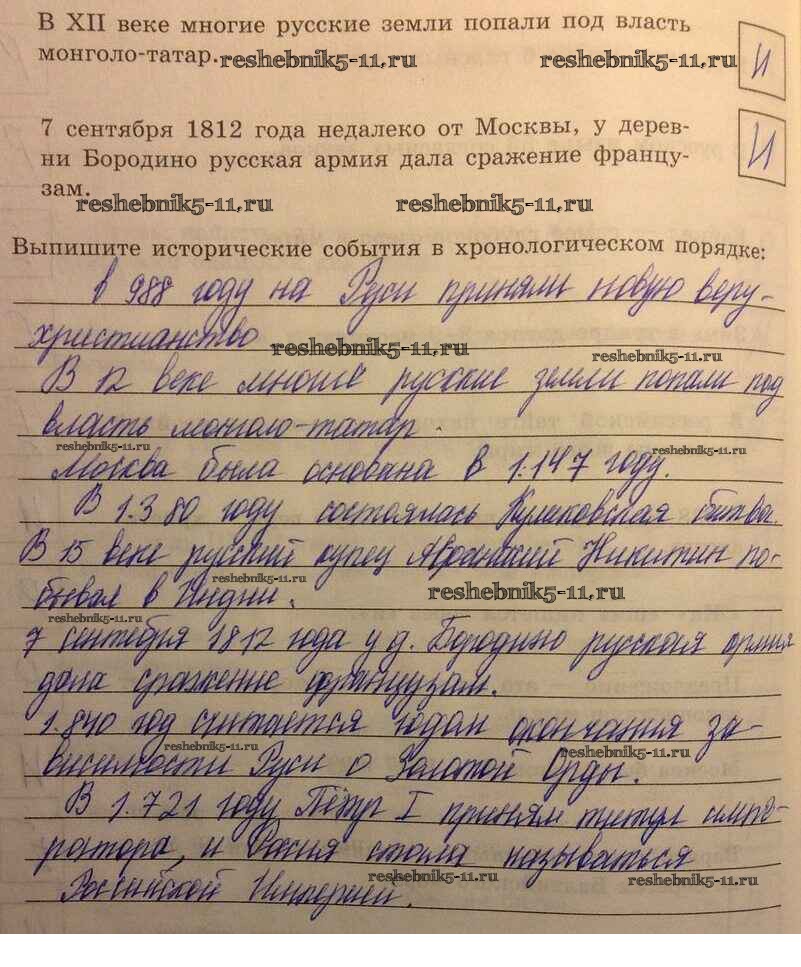 В XII веке многие русские земли попали под власть
монголо-татар. reshebnik5-11.ru reshebnik5-11.ru
И
7 сентября 1812 года недалеко от Москвы, у дерев-
ни Бородино русская армия дала сражение францу-
зам.
И
reshebnik5-11.ru reshebnik5-11.ru
Выпишите исторические события в хронологическом порядке:
в 988 году на Руси приняли новую веру-
христианство
reshebnik5-11.ru reshebnik5-11.ru
В 12 веке многие русские земли попали под
власть монголо-татар.
reshebnik5-11.ru reshebnik5-11.ru
Москва была основана в 1.147 году.
В 1.380 году состоялась Куликовская битва.
В 15 веке русский купец Афанасий Никитин по-
reshebnik5-11.ru reshebnik5-11.ru
бывал в Индии.
reshebnik5-11.ru
7 сентября 1812 года у д. Бородино русская армия
дала сражение французам.
1.840 год считается годом окончания за-
reshebnik5-11.ru reshebnik5-11.ru
висимости Руси о Золотой Орды.
В 1.721 году Пётр I принял титул импе-
ратора, и Россия стала называться
reshebnik5-11.ru reshebnik5-11.ru
Российской Империей.